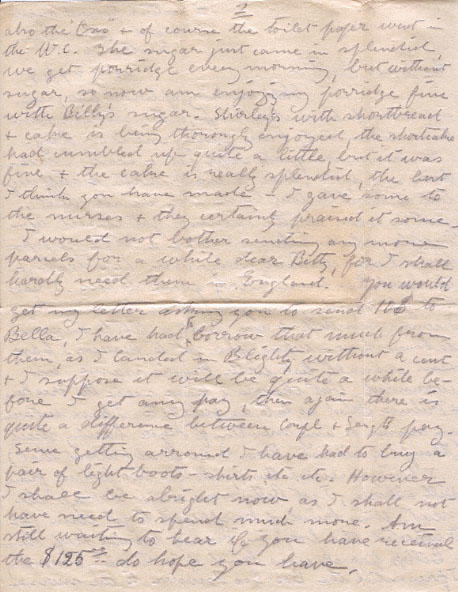 2
also the "Oxo" & of course the toilet paper went in
the W.C. The sugar just came in splendid,
we get porridge every morning, but without
sugar, so now am enjoying porridge fine
with Billy's sugar. Shirley's with shortbread
& cake is being thorougly enjoyed, the shortcake
had crumbled up quite a little, but it was
fine & the cake is really splendid, the best
I think you have made - I gave some to
the nurses & they certainly praised it some.
I would not bother sending any more
parcels for a while dear Betty, for I shall
hardly need them in England. You would
get my letter asking you to send to
Bella, I have had to borrow that much from
them, as I landed in Blighty without a cent
& I suppose it will be quite a while be-
fore I get any pay, then again there is
quite a difference between Corpl & Sergts pay.
Since getting arround I have had to buy a
pair of light boots - shirts etc etc. However
I shall be alright now, as I shall not
have need to spend much more. Am
still waiting to hear if you have received
the $125 - do hope you have.